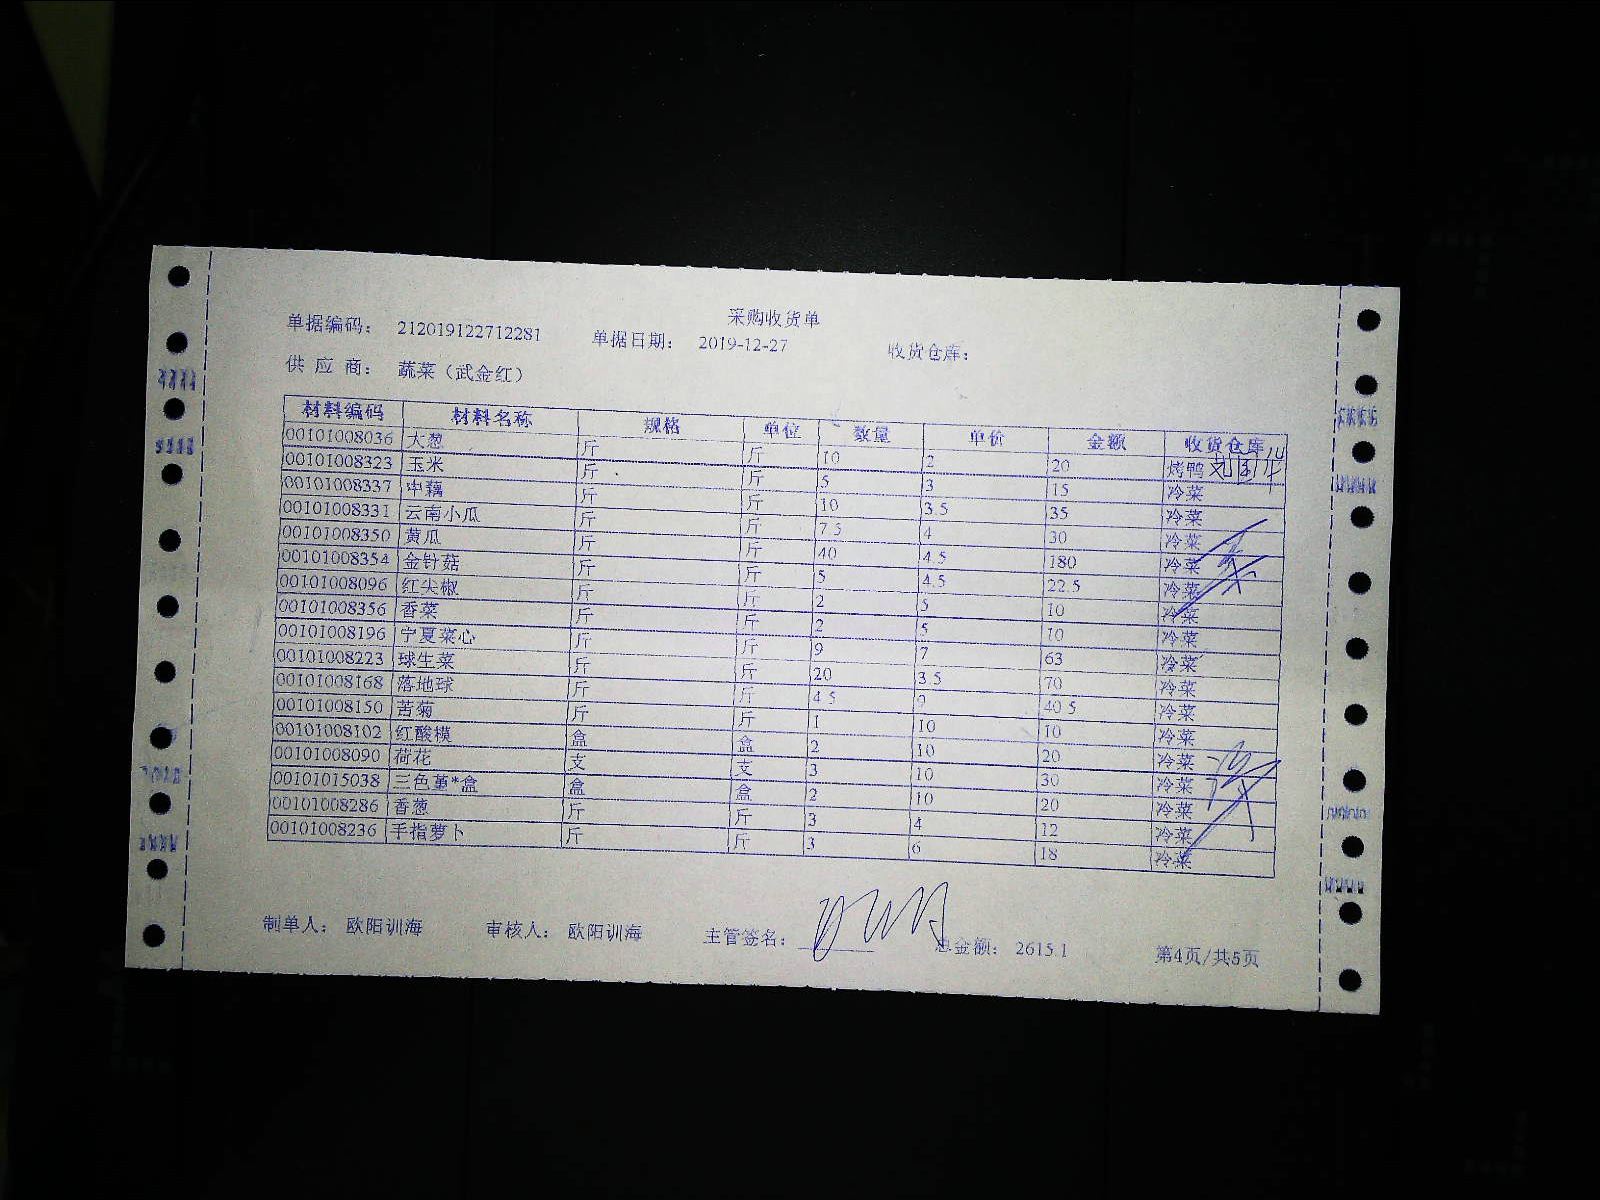 采购收货单
单据编码: 212019122712281 单据日期: 2019-12-27 收货仓库:
供 应 商: 蔬菜（武金红）
材料编码 材料名称 规格 单位 数量 单价 金额 收货仓库
00101008036 大葱 斤 斤 10 2 20 烤鸭
00101008323 玉米 斤 斤 5 3 15 冷菜
00101008337 中藕 斤 斤 10 3.5 35 冷菜
00101008331 云南小瓜 斤 斤 7.5 4 30 冷菜
00101008350 黄瓜 斤 斤 40 4.5 180 冷菜
00101008354 金针菇 斤 斤 5 4.5 22.5 冷菜
00101008096 红尖椒 斤 斤 2 5 10 冷菜
00101008356 香菜 斤 斤 2 5 10 冷菜
00101008196 宁夏菜心 斤 斤 9 7 63 冷菜
00101008223 球生菜 斤 斤 20 3.5 70 冷菜
00101008168 落地球 斤 斤 4.5 9 40.5 冷菜
00101008150 苦菊 斤 斤 1 10 10 冷菜
00101008102 红酸模 盒 盒 2 10 20 冷菜
00101008090 荷花 支 支 3 10 30 冷菜
00101015038 三色堇*盒 盒 盒 2 10 20 冷菜
00101008286 香葱 斤 斤 3 4 12 冷菜
00101008236 手指萝卜 斤 斤 3 6 18 冷菜
制单人: 欧阳训海 审核人: 欧阳训海 主管签名: 总金额: 2615.1 第4页/共5页